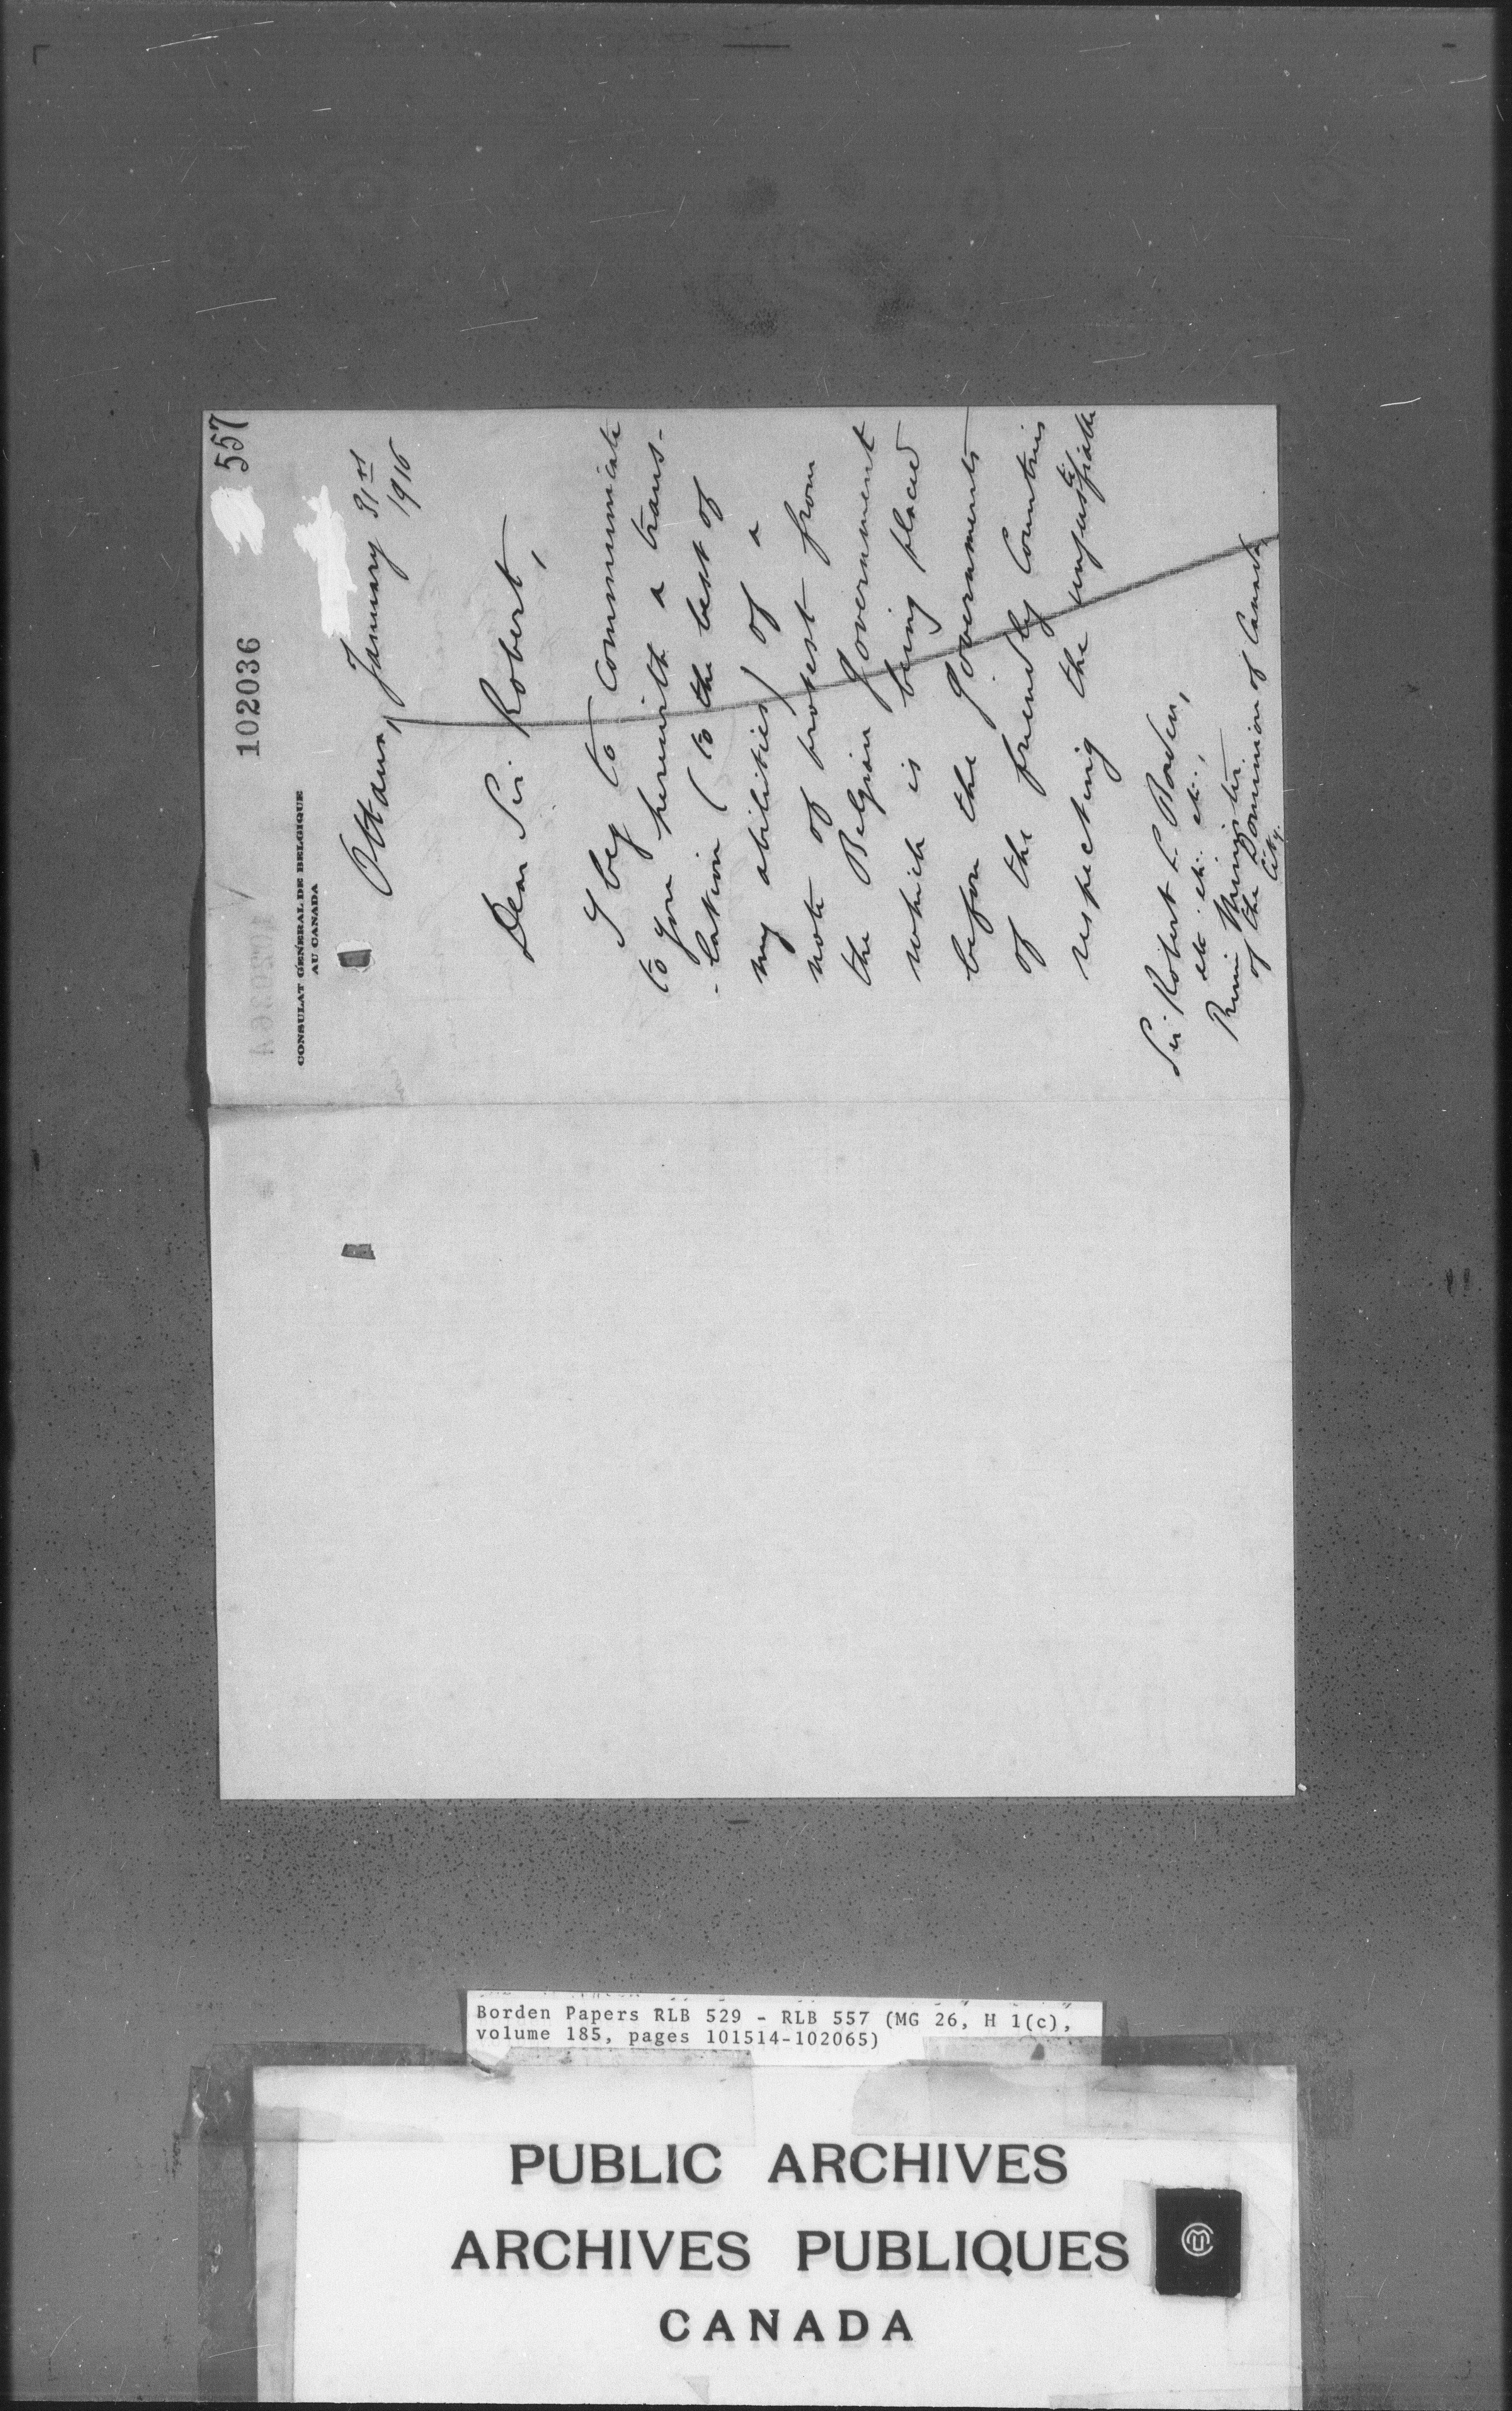 557
102036
CONSULAT GÉNÉRAL DE BELGIQUE
AU CANADA
Ottawa, January 31st
1916
Dear Sir Robert,
I beg to communicate
to you herewith a trans-
-lation (to the best of
my abilities) of a
note of protest from
the Belgian Government
which is being placed
before the Governments
of the friendly Countries
respecting the
Sir Robert L. Borden,
etc. etc. etc.,
Prime Minister
of the Dominion of Canada,
City.
Borden Papers RLB 529 - RLB 557 (MG 26, H 1(c),
volume 185, pages 101514-102065)
PUBLIC ARCHIVES
ARCHIVES PUBLIQUES
CANADA